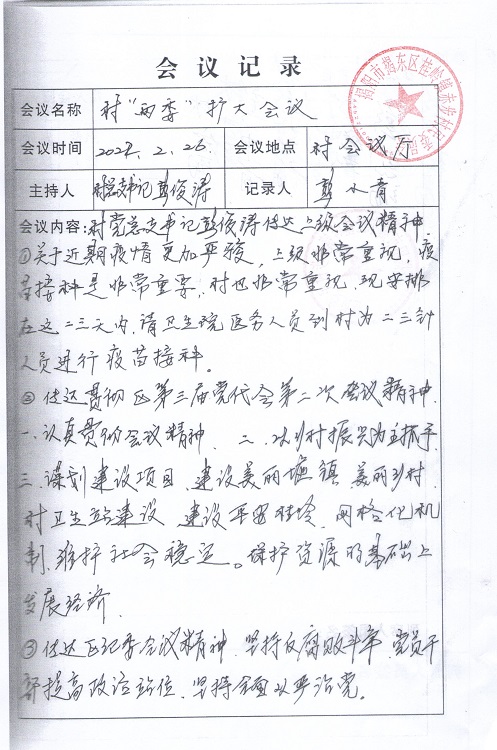 会议记录
会议名称 村“两委”扩大会议
会议时间 2022.2.26 会议地点 村会议厅
主持人 村总支书记彭俊涛 记录人 彭小青
会议内容：村党总支书记彭俊涛传达上级会议精神
①关于近期疫情更加严骏，上级非常重视，疫
苗接种是非常重要，村也非常重视，现安排
在这二三天内，请卫生院医务人员到村为二三针
人员进行疫苗接种。
②传达贯彻区第三届党代会第二次会议精神.
一.认真贯彻会议精神. 二.以乡村振兴为主抓手.
三.谋划建设项目，建设美丽圩镇，美丽乡村，
村卫生站建设，建设平安桂岭，网格化机
制，维护社会稳定。保护资源的基础上
发展经济.
③传达区纪委会议精神，坚持反腐败斗争，党员干
部提高政治站位，坚持全面从严治党。